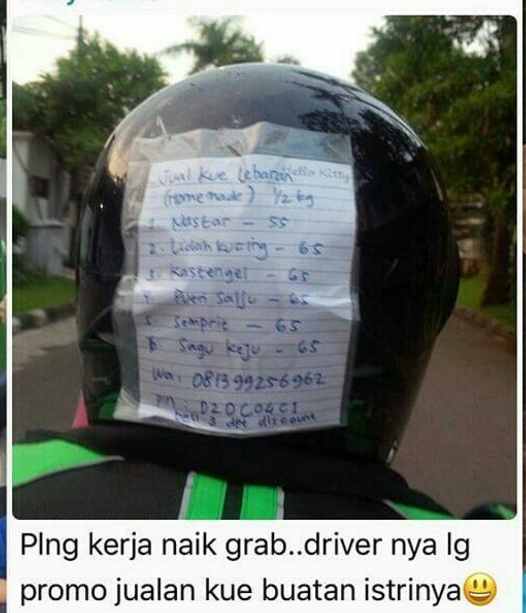 Hello Kitty
Jual kue lebaran
(Home made) 1/2 kg
1. Nastar - 55
2. Lidah kucing - 65
3. Kastengel - 65
4. Puteri Salju - 65
5. Semprit - 65
6. Sagu keju - 65
Wa: 081399256962
Pin: D20C04C1
beli 3 dpt discount
Plng kerja naik grab..driver nya lg
promo jualan kue buatan istrinya😃